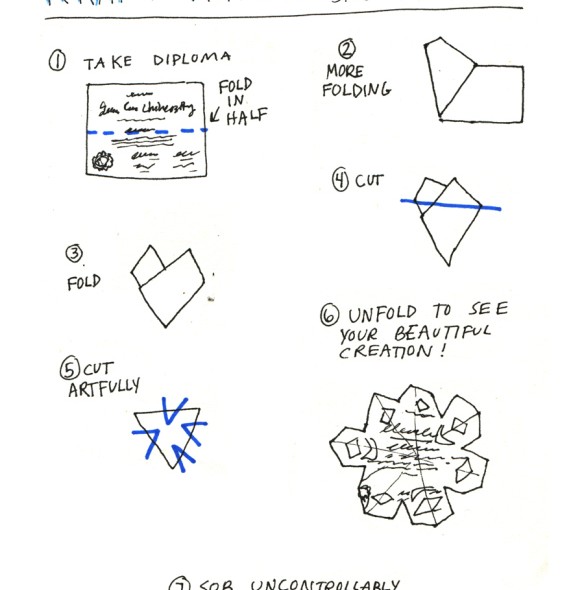 ① TAKE DIPLOMA
FOLD
IN
HALF
② MORE
FOLDING
③
FOLD
④ CUT
⑤ CUT
ARTFULLY
⑥ UNFOLD TO SEE
YOUR BEAUTIFUL
CREATION!
⑦ SOB UNCONTROLLABLY